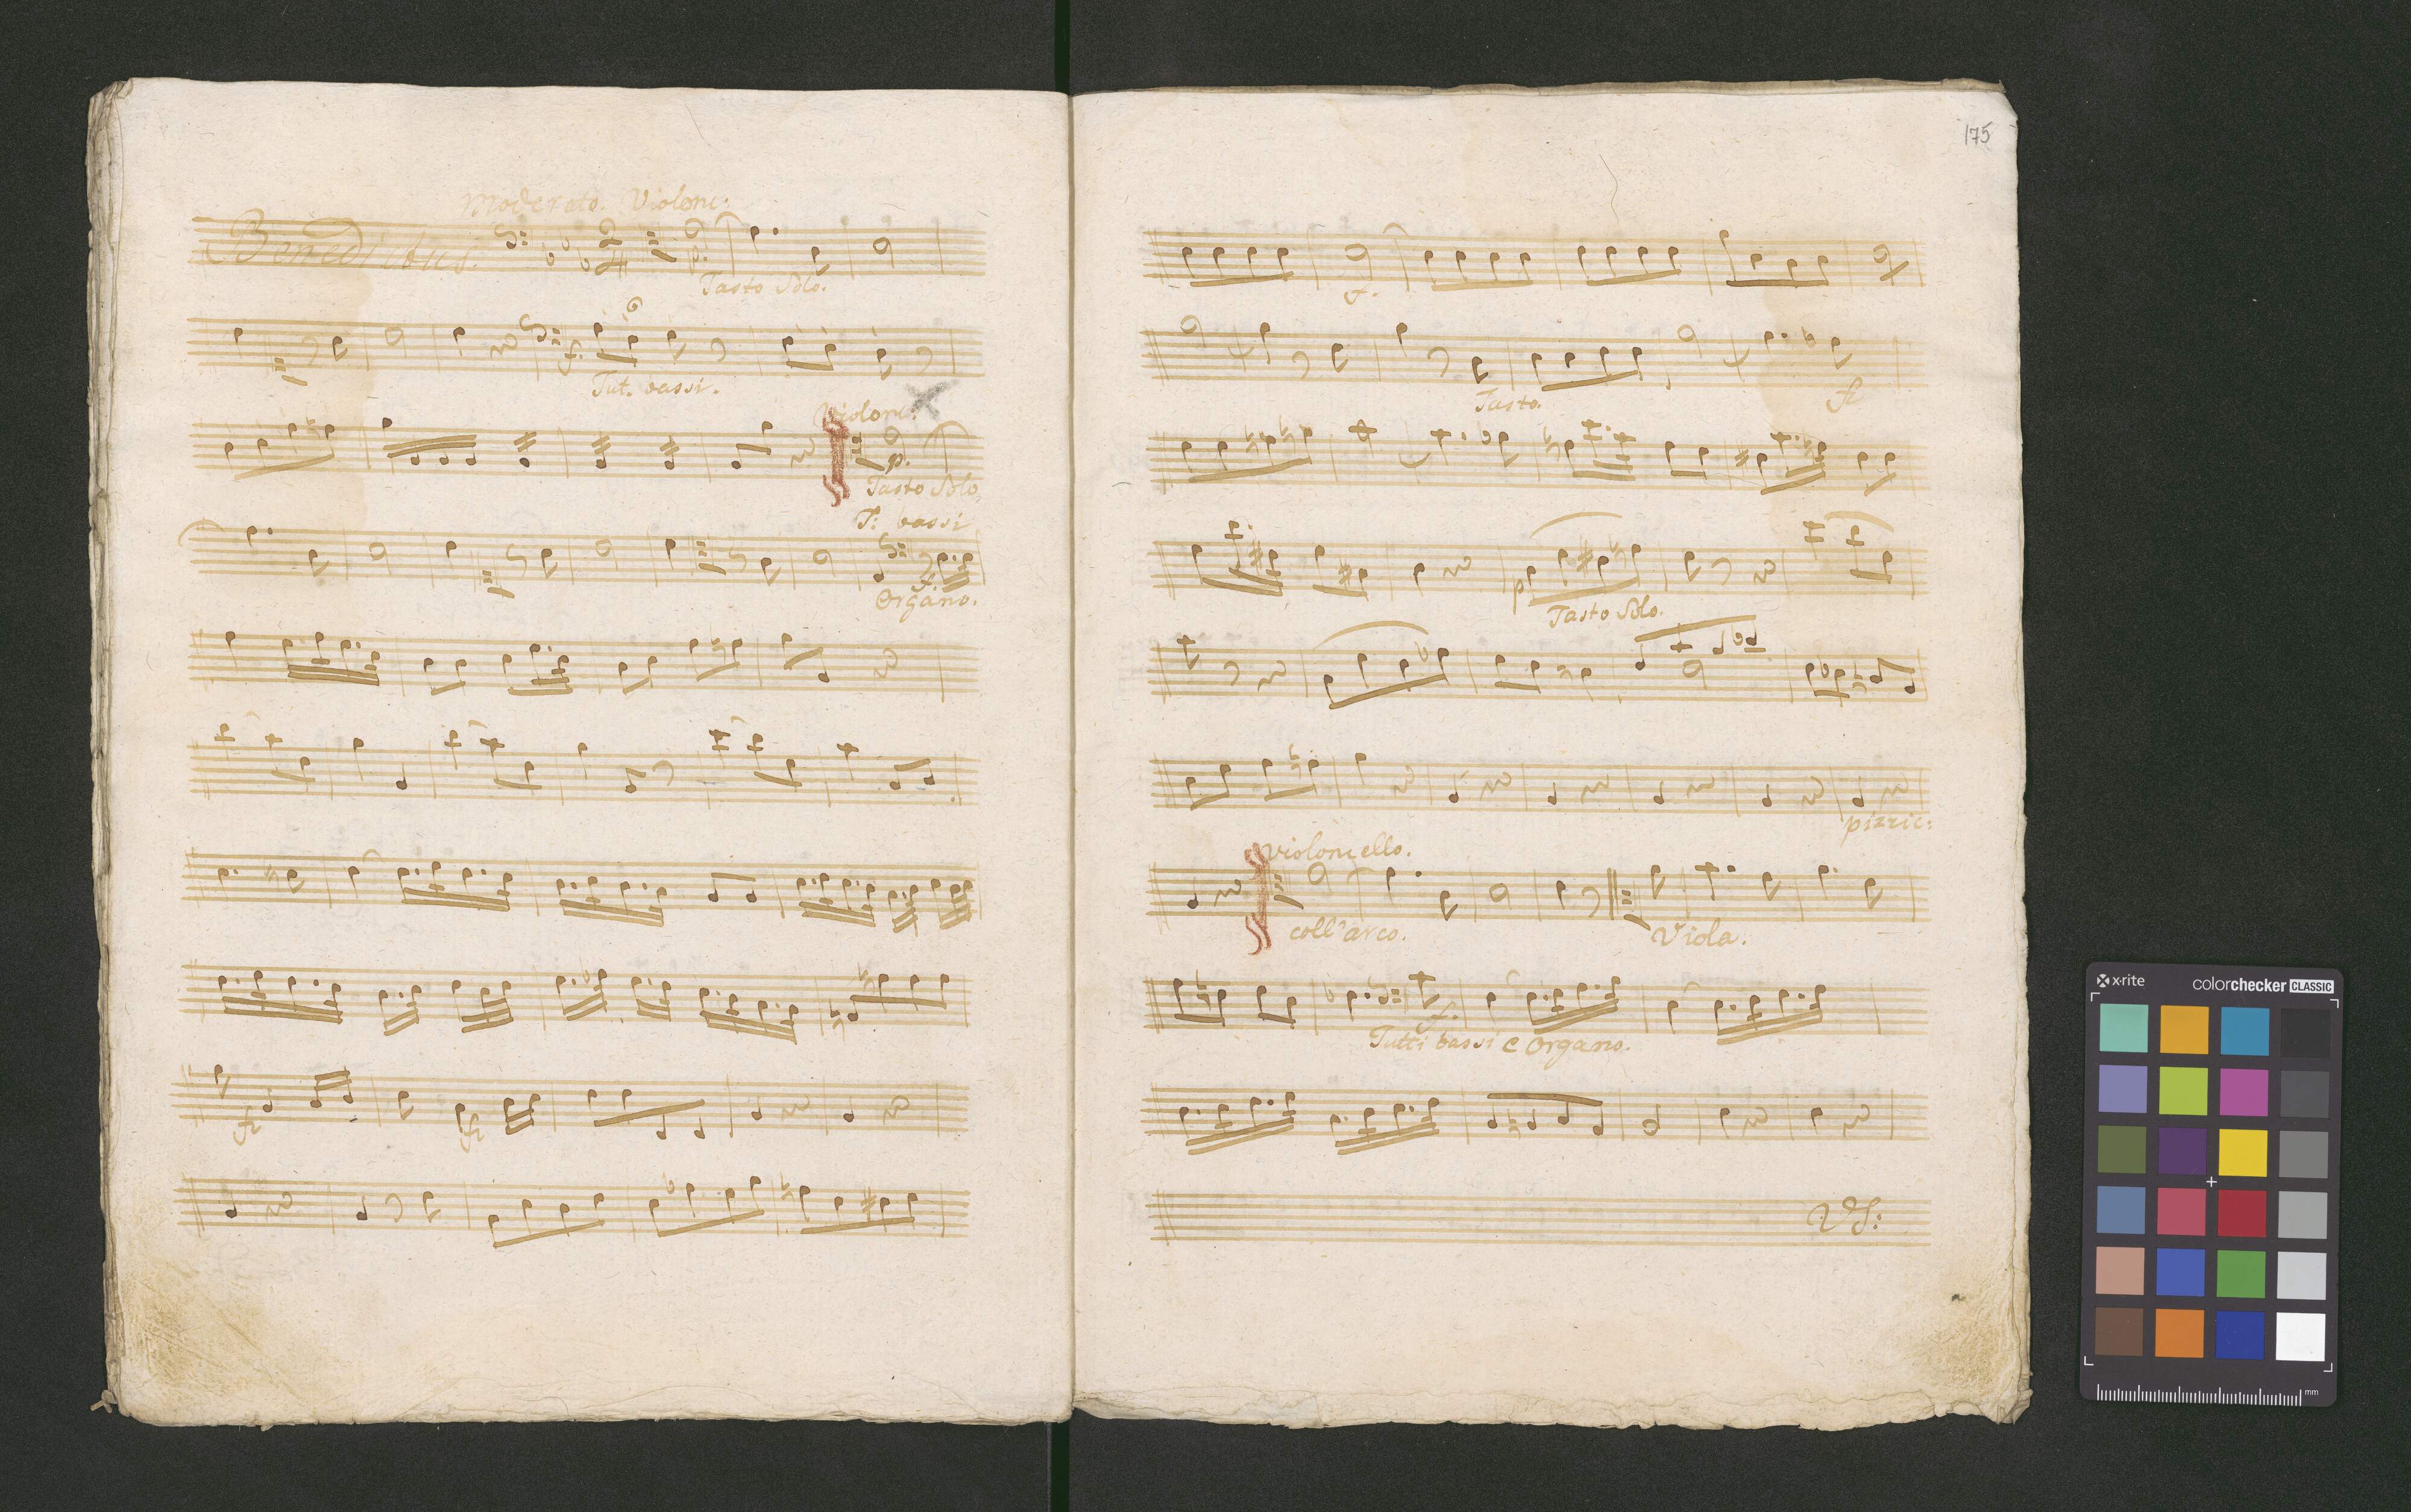 Moderato. Violonc:
Benedictus.
Tasto Solo.
f.
Tut. bassi.
Violonc:
p.
Tasto Solo,
T: bassi
f.
Organo.
fz
fz
175
f.
Tasto.
p
Tasto Solo.
pizzic:
Violoncello.
coll'arco.
Viola.
f.
Tutti bassi e Organo.
VS:
x-rite
colorchecker CLASSIC
mm